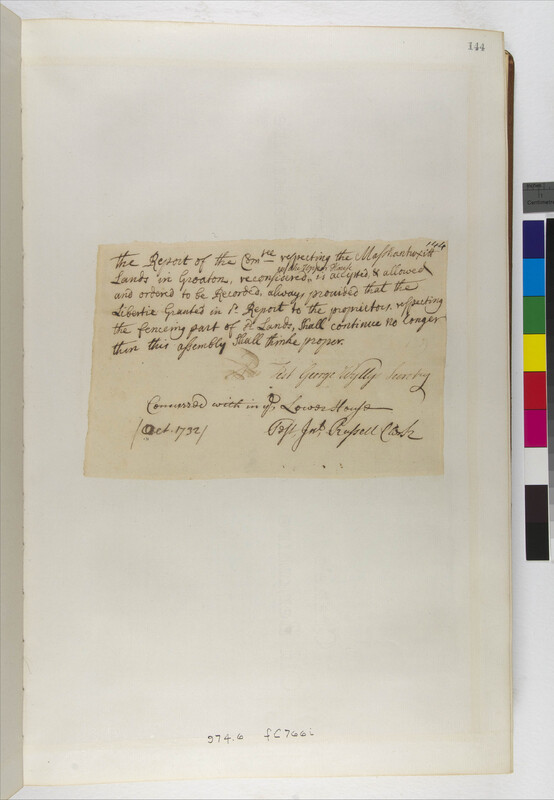 144
144
the Report of the Com.tee respecting the Mashantuxitt
Lands in Groaton, reconsidered, is accepted & allowed
in the Upper House
and ordered to be Recorded, alway, provided that the
Libertie Granted in s.d Report to the proprietors, respecting
the fenceing part of s.d Lands, Shall continue no longer
then this assembly Shall thinke proper.
Test George Wyllys Secretry
Concurred with in ye Lower House
/Oct. 1732/ Test Jn.o Russell Clerk
974.6 fC766i